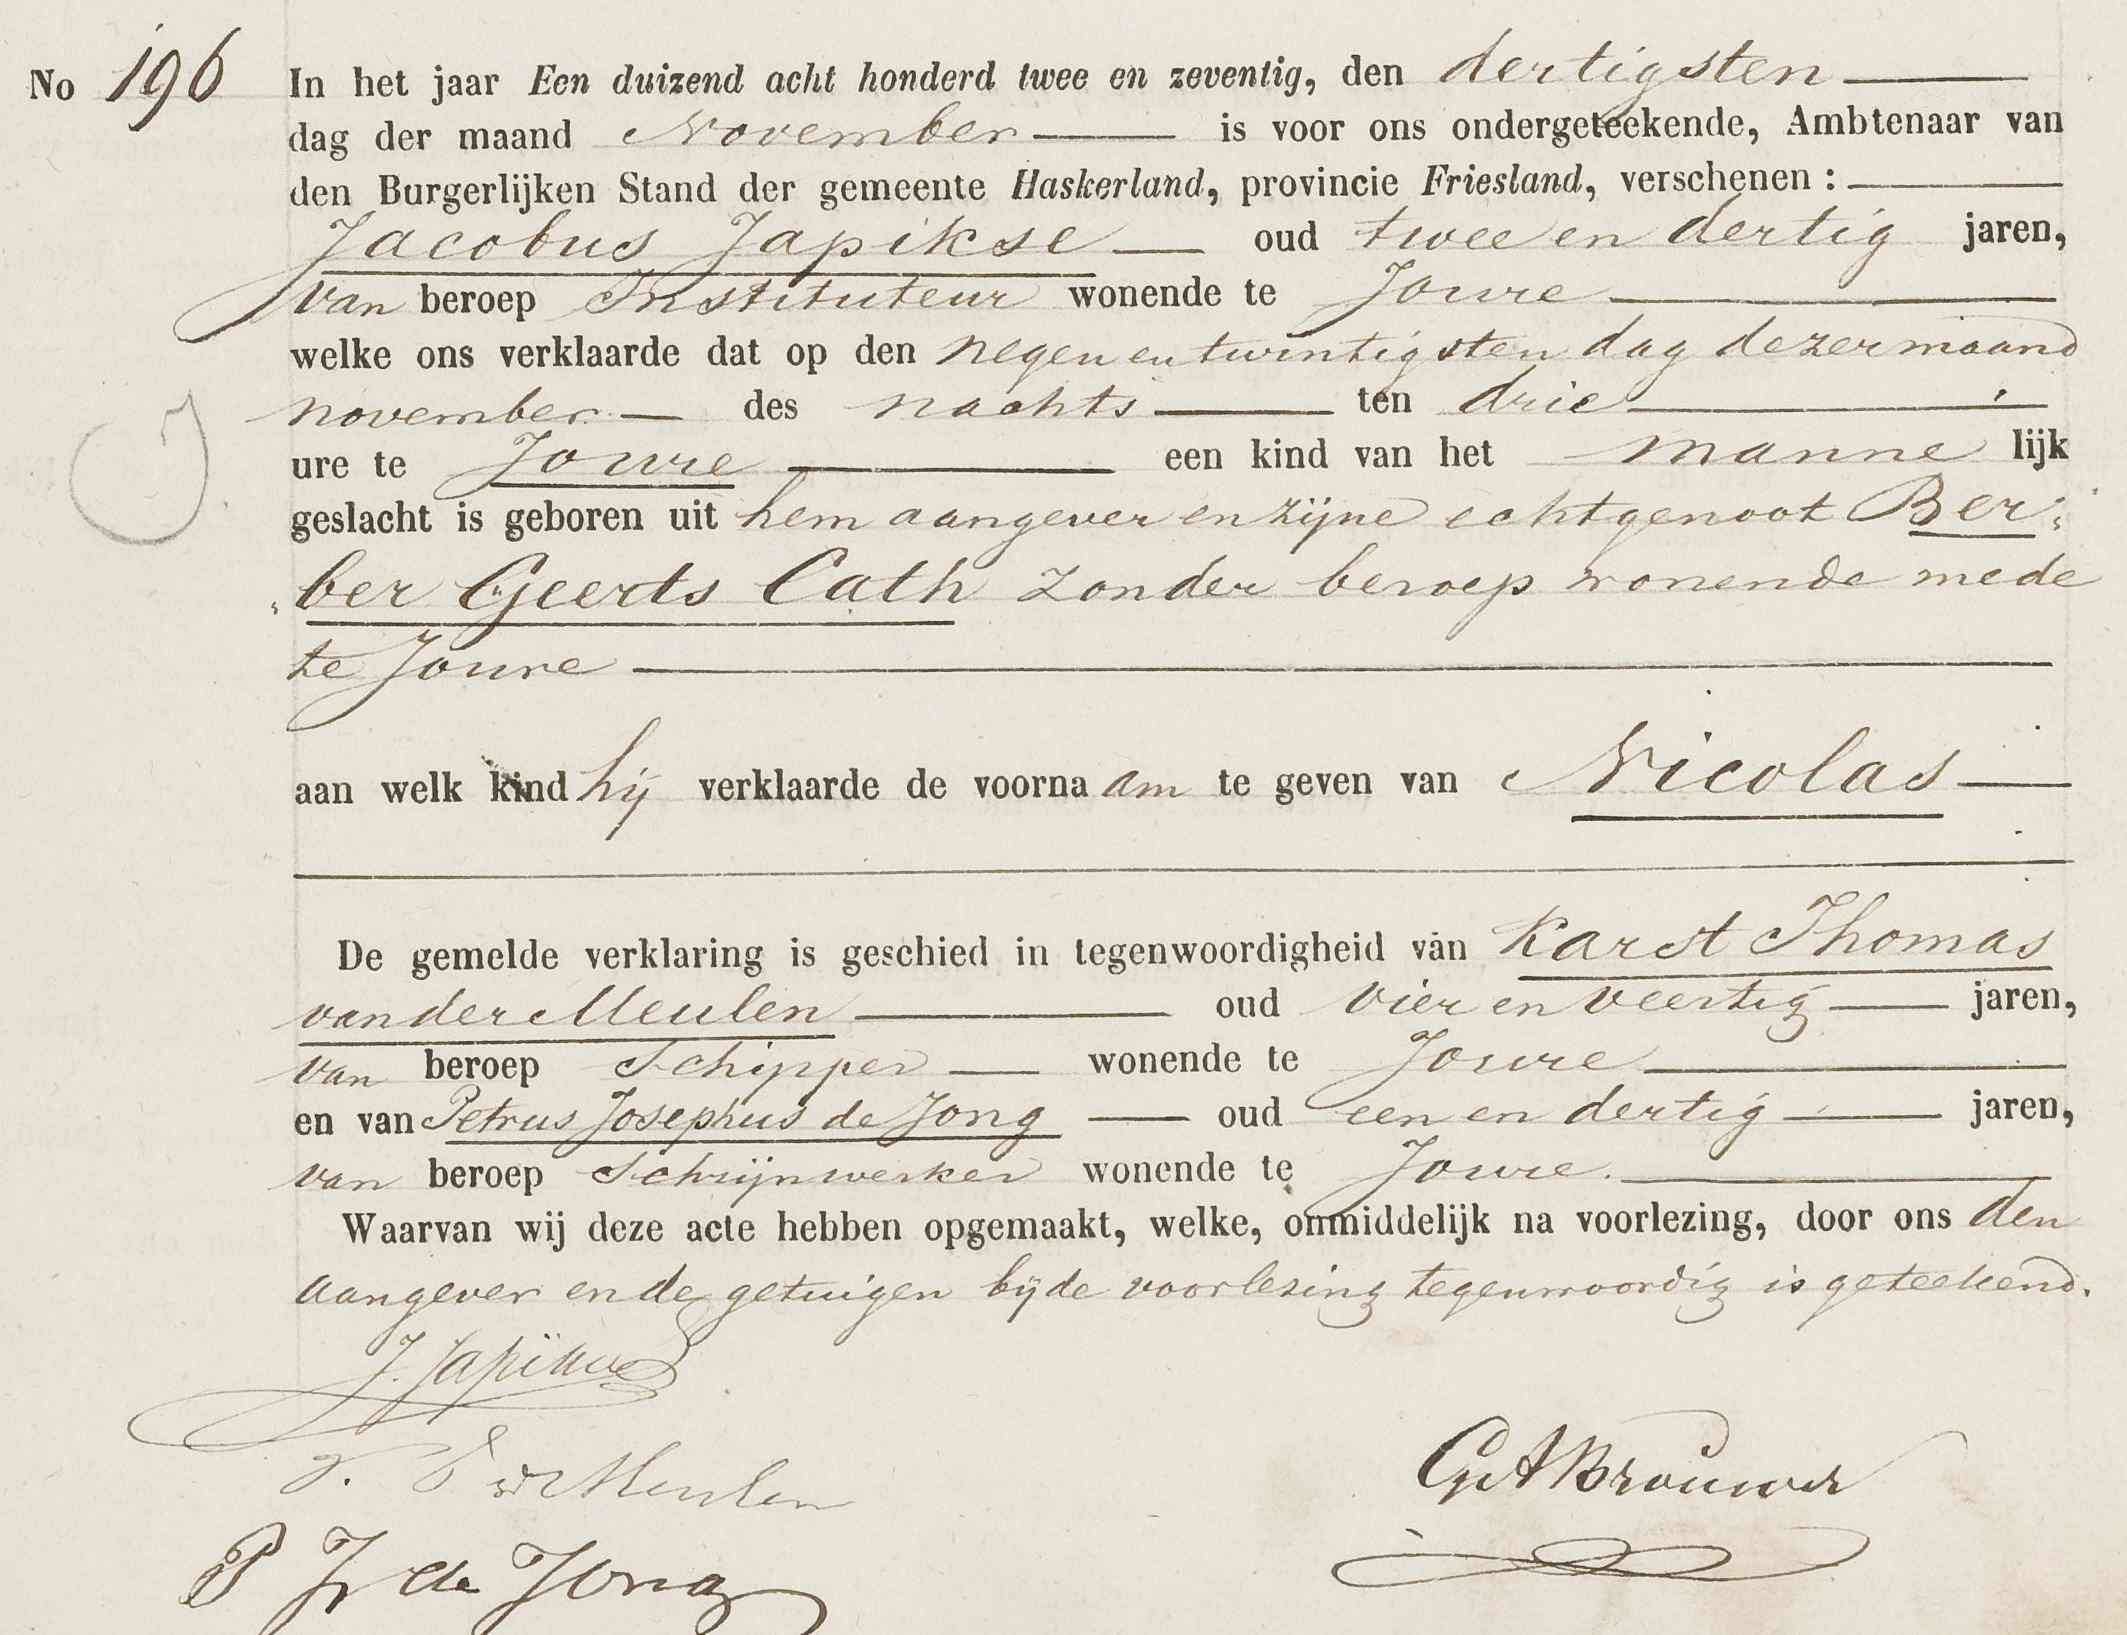 No 196 In het jaar Een duizend acht honderd twee en zeventig, den dertigsten
dag der maand November is voor ons ondergeteekende, Ambtenaar van
den Burgerlijken Stand der gemeente Haskerland, provincie Friesland, verschenen:
Jacobus Japikse oud twee en dertig jaren,
van beroep Instituteur wonende te Joure
welke ons verklaarde dat op den negen en twintigsten dag dezer maand
november des nachts ten drie
ure te Joure een kind van het manne lijk
geslacht is geboren uit hem aangever en zijne echtgenoot Ber„
„ber Geerts Cath zonder beroep wonende mede
te Joure
aan welk kind hij verklaarde de voorna am te geven van Nicolas
De gemelde verklaring is geschied in tegenwoordigheid van Karst Thomas
van der Meulen oud vier en veertig jaren,
van beroep Schipper wonende te Joure
en van Petrus Josephus de Jong oud een en dertig jaren,
van beroep Schrijnwerker wonende te Joure.
Waarvan wij deze acte hebben opgemaakt, welke, onmiddelijk na voorlezing, door ons den
aangever en de getuigen bij de voorlezing tegenwoordig is geteekend.
J. Japikse
vd Meulen
Brouwer
P J de Jong